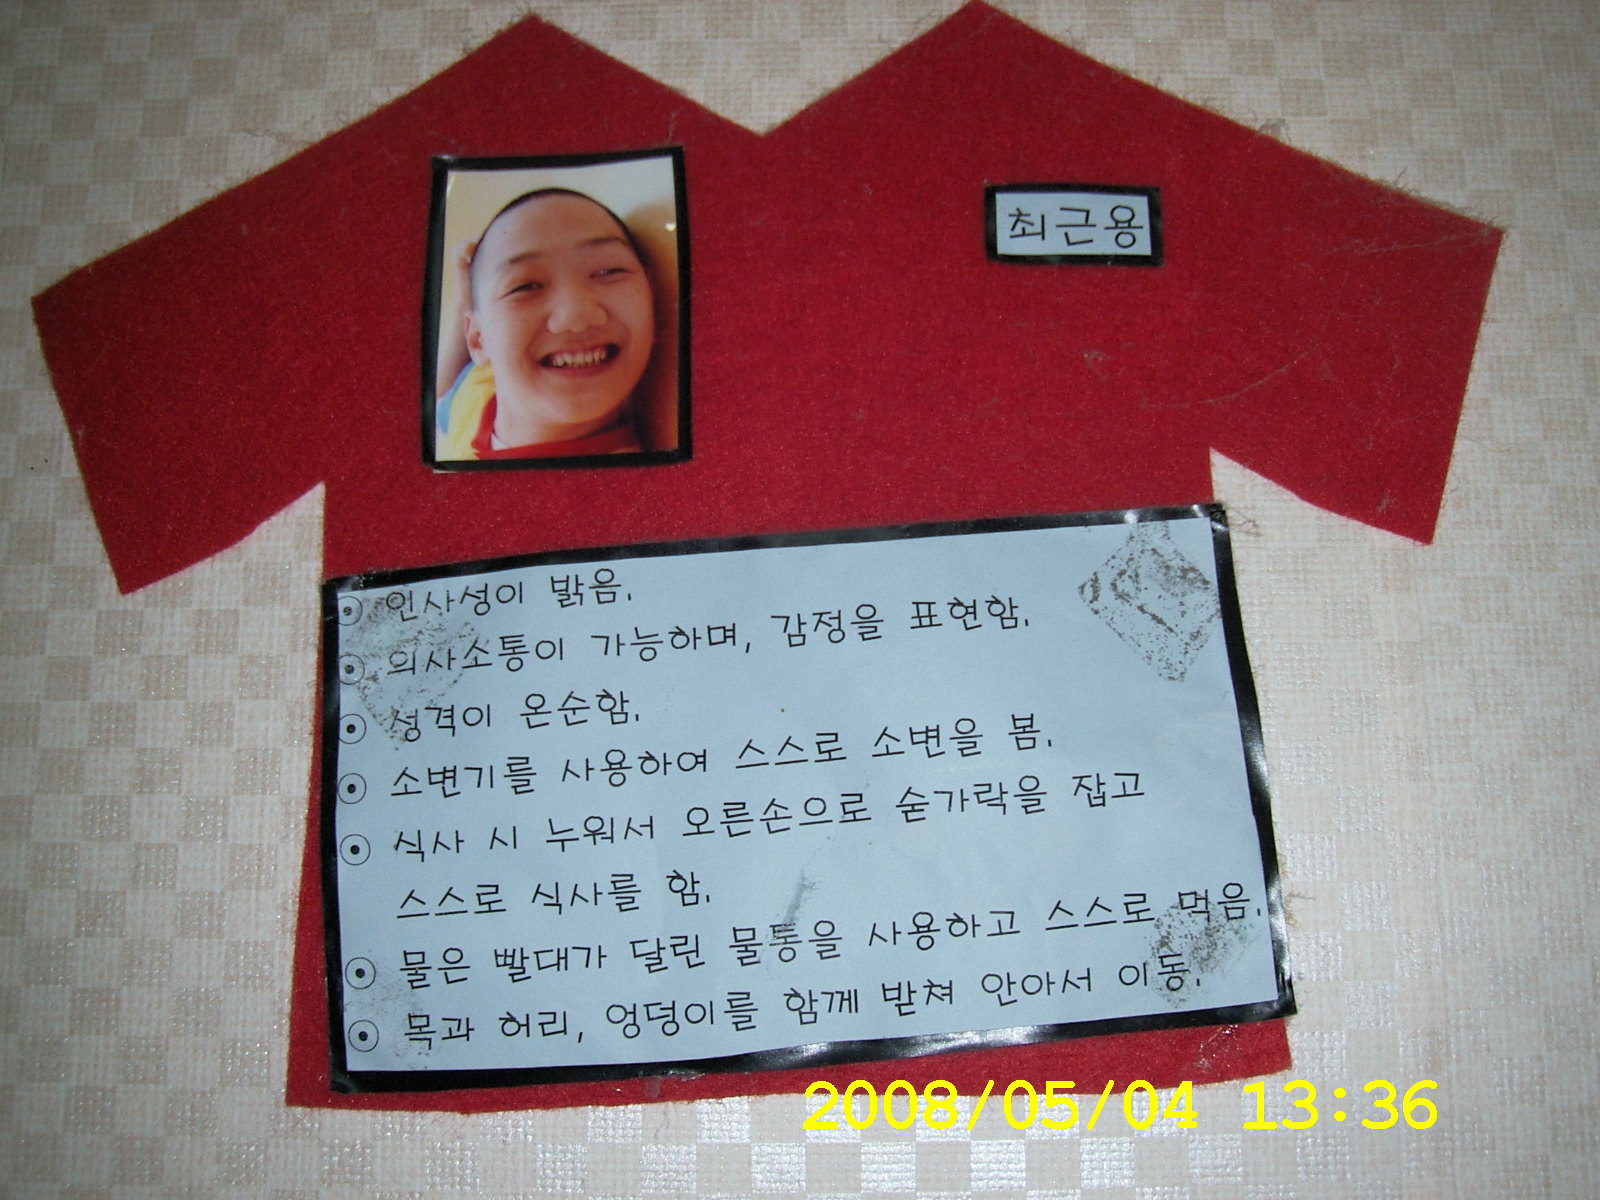 최근용
⊙ 인사성이 밝음.
⊙ 의사소통이 가능하며, 감정을 표현함.
⊙ 성격이 온순함.
⊙ 소변기를 사용하여 스스로 소변을 봄.
⊙ 식사 시 누워서 오른손으로 숟가락을 잡고
스스로 식사를 함.
⊙ 물은 빨대가 달린 물통을 사용하고 스스로 먹음.
⊙ 목과 허리, 엉덩이를 함께 받쳐 안아서 이동.
2008/05/04 13:36